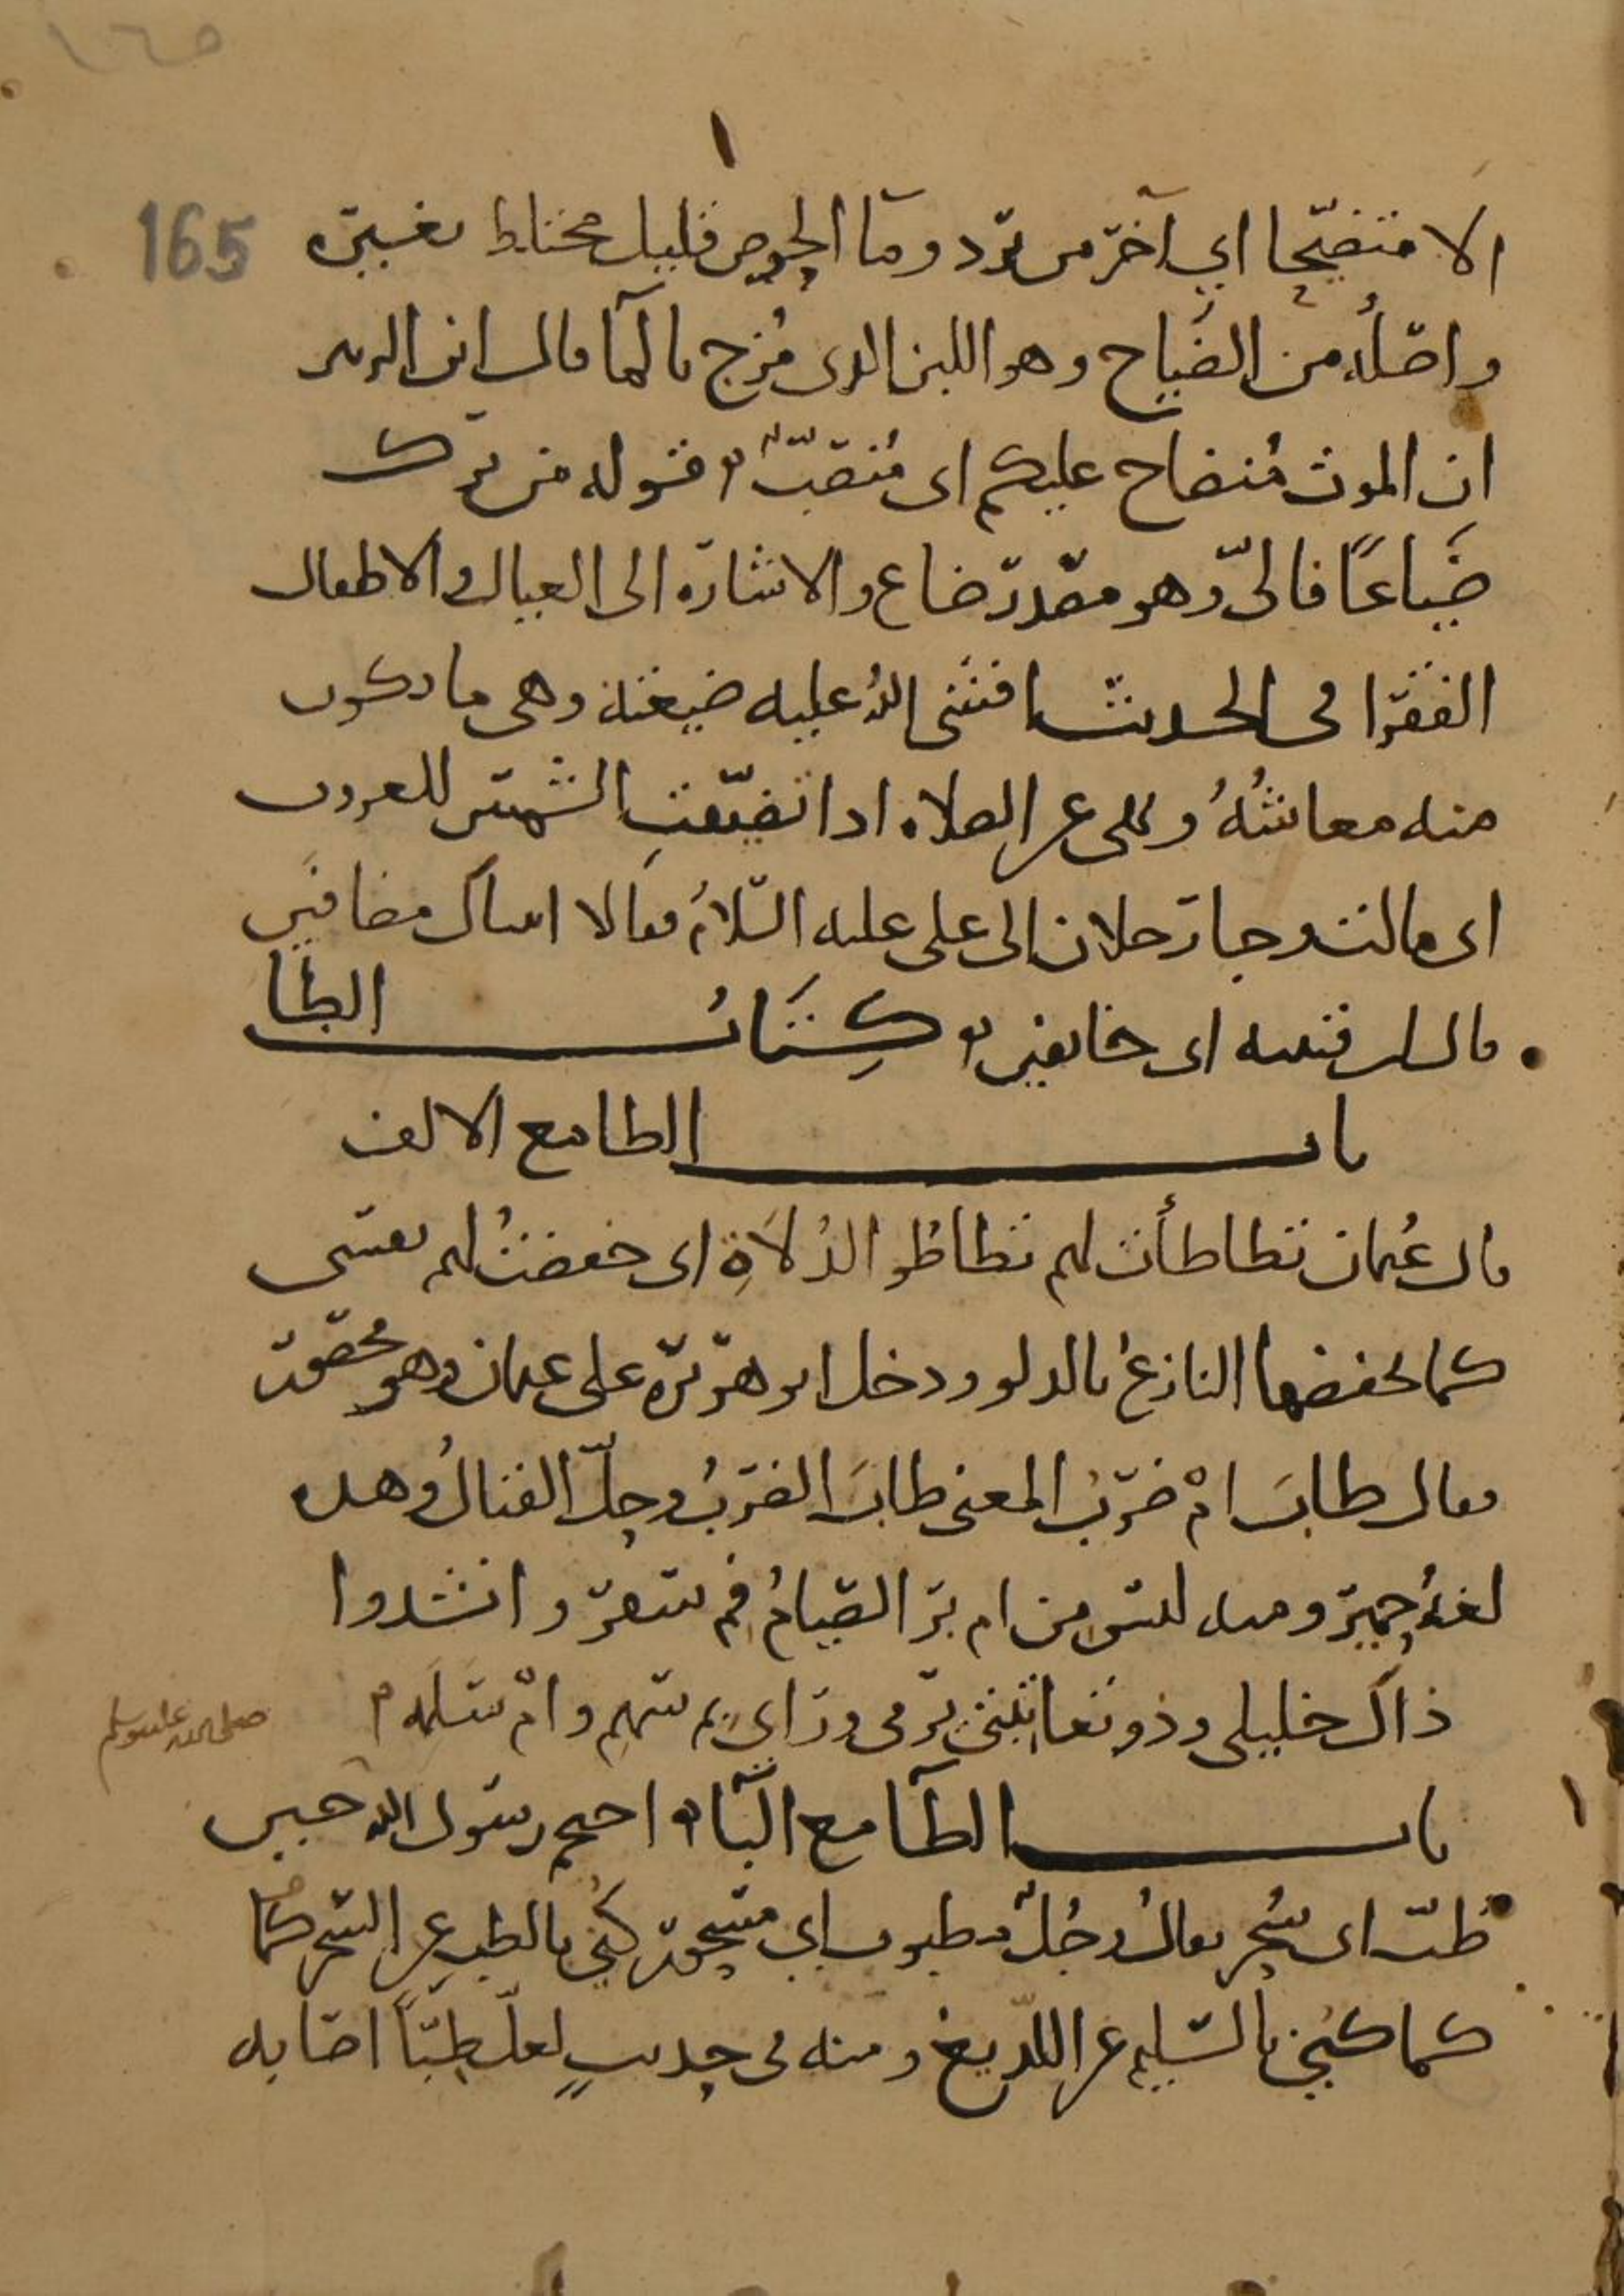 ١٦٥
165
الا متضيحا اي آخر من يرد وما الحوض قليل مختلط بغيره
واصله من الضياح وهو اللبن الذى مزج بالما قال ابن الزبير
ان الموت منضاح عليكم اى منصب قوله من ترك
ضياعا فالى وهو مصدر ضاع والاشارة الى العيال والاطفال
الفقرا فى الحديث افشى الله عليه ضيعته وهى ما يكون
منه معاشه ونهى عن الصلاه اذا تضيفت الشمس للغروب
اى مالت وجا رجلان الى على عليه السلام فقالا اتيناك مضافين
قال ابن قتيبه اى خايفين كتاب الطا
باب الطا مع الالف
قال عثمان تطاطأت لهم تطاطؤ الدلاة اى خفضت لهم نفسى
كما يخفضها النازع بالدلو ودخل ابو هريرة على عثمان وهو محصور
فقال طاب ام ضرب المعنى طاب الضرب وحل القتال وهذه
لغة حمير ومنه ليس من ام بر الصيام فى سفر وانشدوا
ذاك خليلى وذو يعاتبنى يرمى وراى بم سهم وام سلمه
صلى الله عليه وسلم
باب الطا مع البا احتجم رسول الله حين
طب اى سحر يقال رجل مطبوب اى مسحور كنى بالطب عن السحر كما
كما كنى بالسليم عن اللديغ ومنه فى حديث لعل طبا اصابه